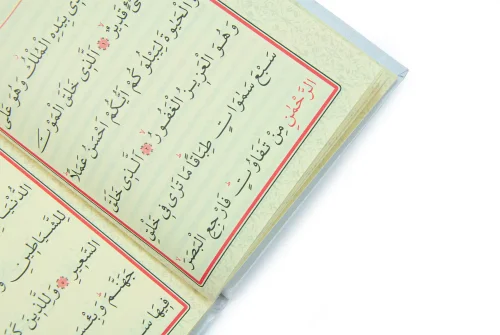 بِيَدِهِ الْمُلْكُ وَهُوَ عَلٰى
قَدِيرٌ ۞ اَلَّذِى خَلَقَ الْمَوْتَ
وَالْحَيٰوةَ لِيَبْلُوَكُمْ اَيُّكُمْ اَحْسَنُ عَمَلًا
وَهُوَ الْعَزِيزُ الْغَفُورُ ۞ اَلَّذِى خَلَقَ
سَبْعَ سَمٰوَاتٍ طِبَاقًا مَا تَرٰى فِى خَلْقِ
الرَّحْمٰنِ مِنْ تَفَاوُتٍ فَارْجِعِ الْبَصَرَ
الدُّنْيَا
لِلشَّيَاطِينِ
السَّعِيرِ ۞ وَلِلَّذِينَ
جَهَنَّمَ وَبِئْسَ
فِيهَا